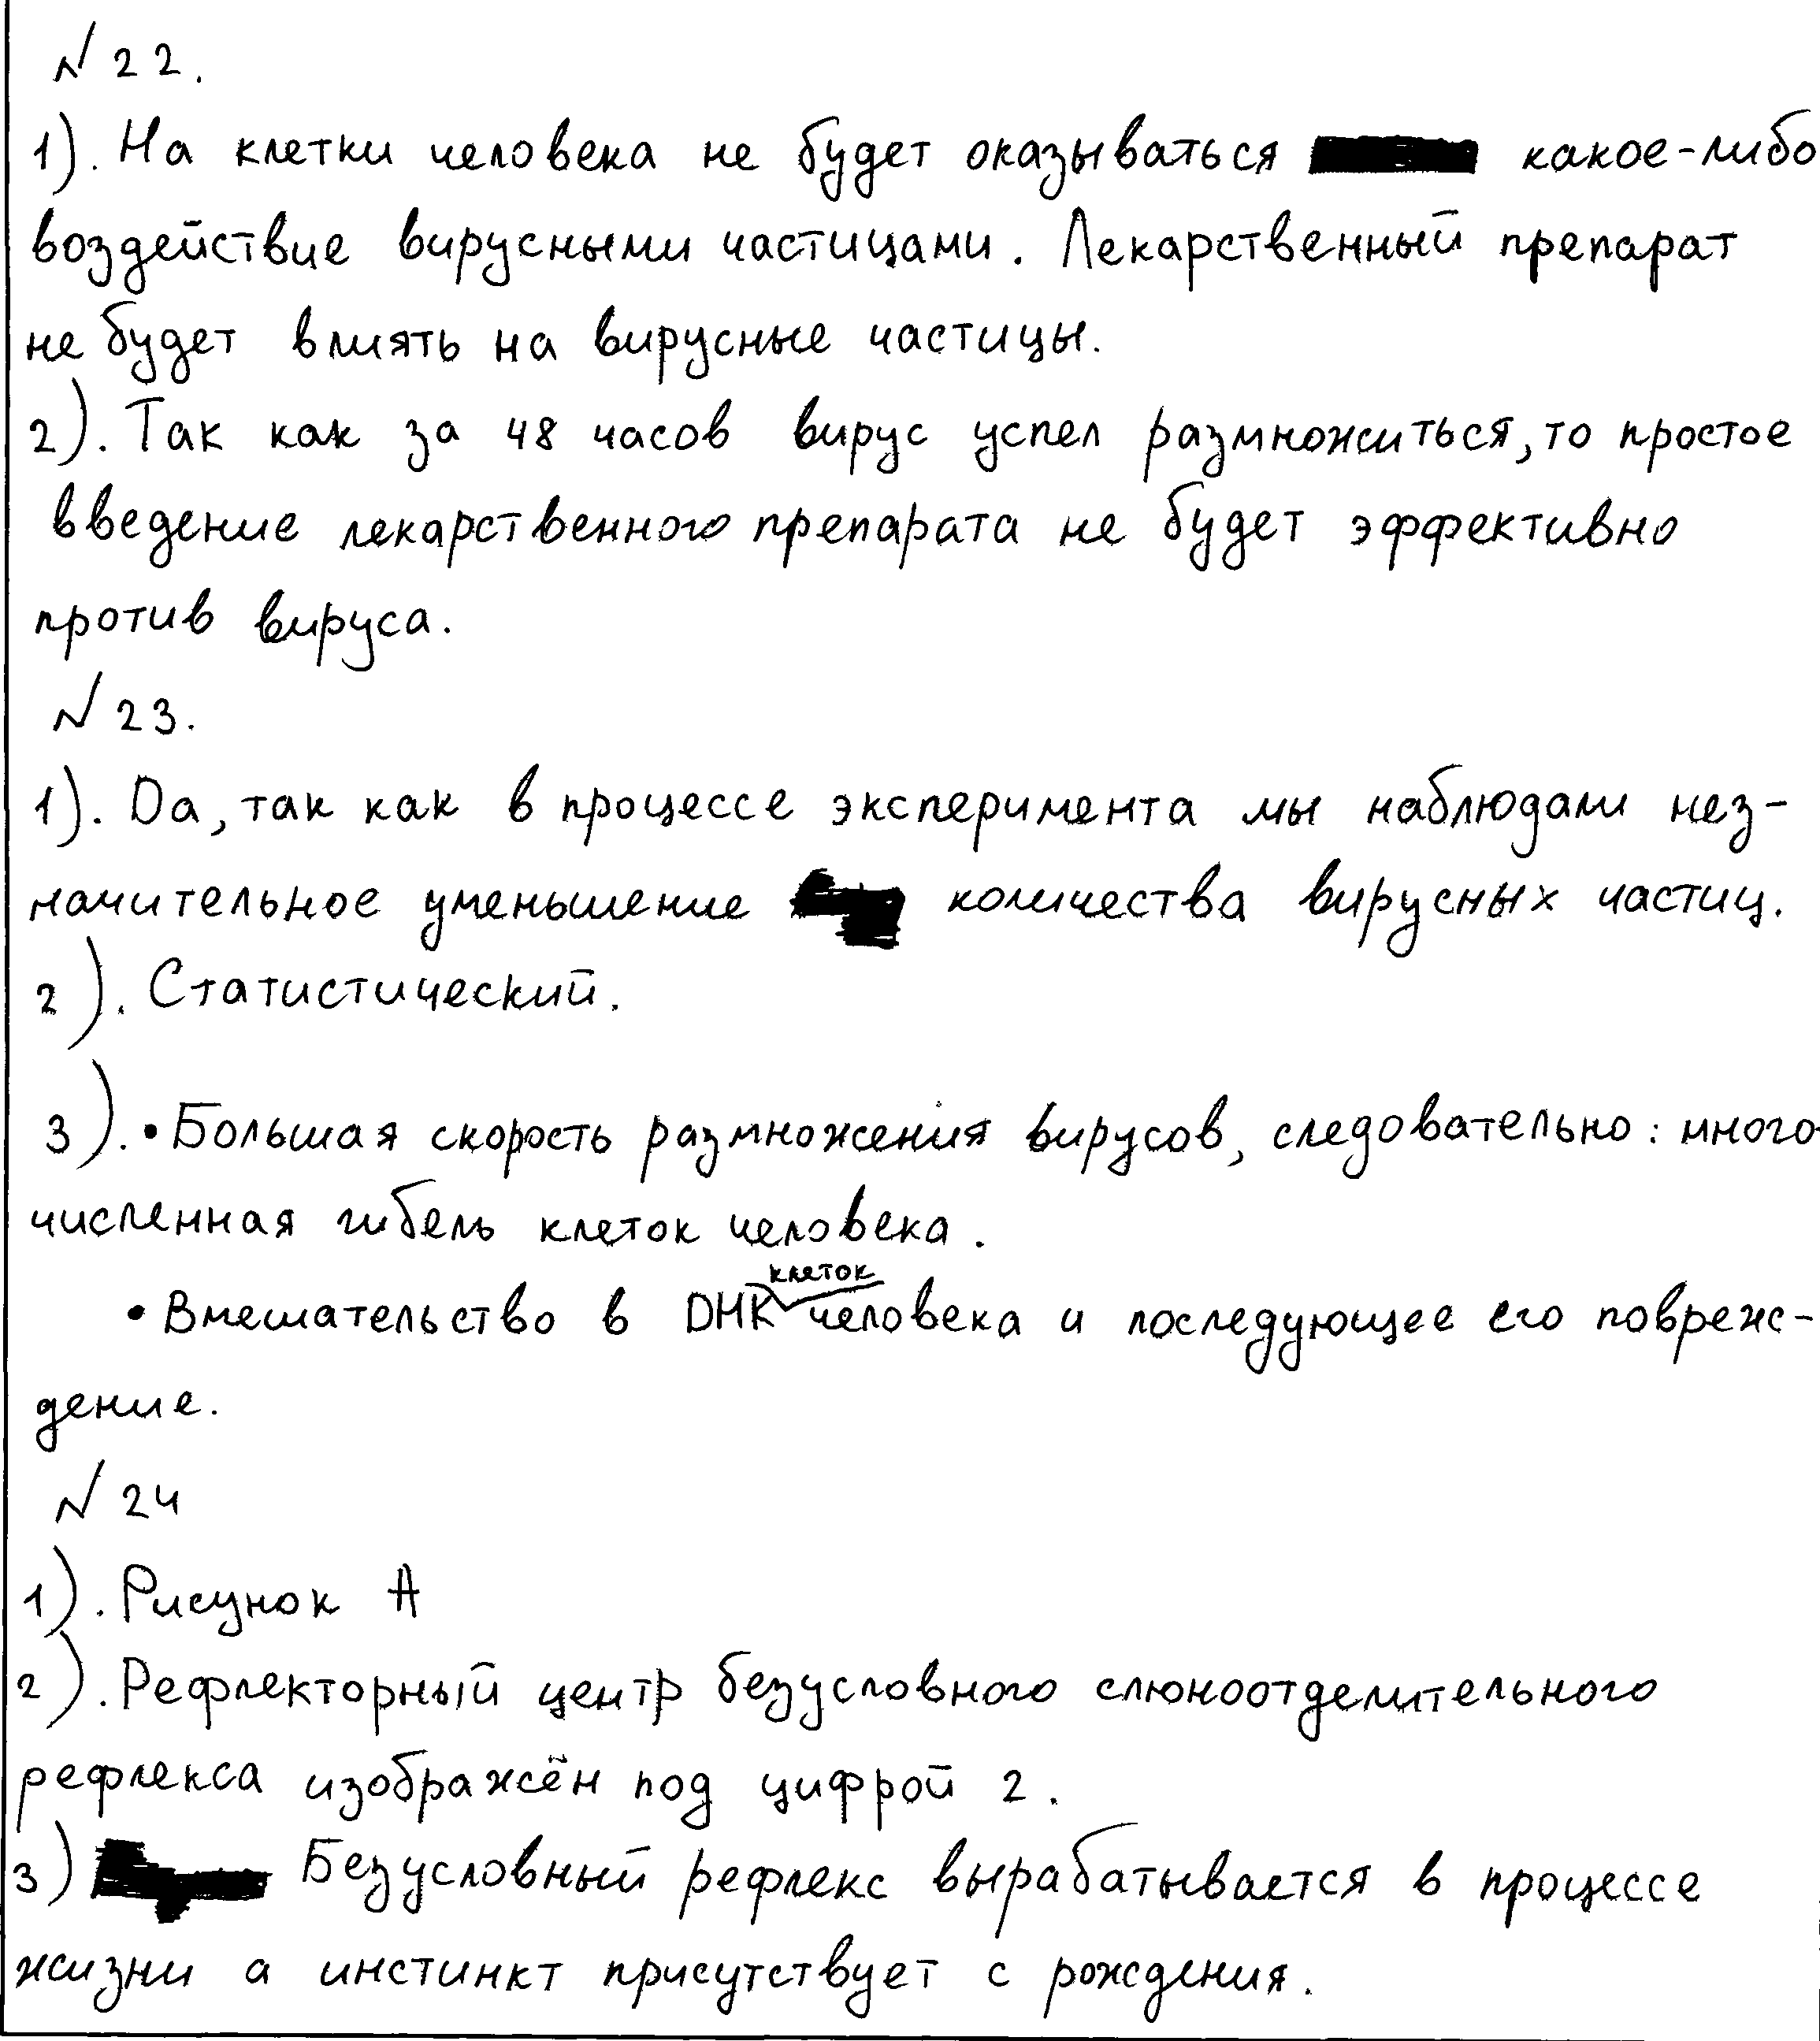 № 22.
1). На клетки человека не будет оказываться какое-либо
воздействие вирусными частицами. Лекарственный препарат
не будет влиять на вирусные частицы.
2). Так как за 48 часов вирус успел размножиться, то простое
введение лекарственного препарата не будет эффективно
против вируса.
№ 23.
1). Да, так как в процессе эксперимента мы наблюдали нез-
начительное уменьшение количества вирусных частиц.
2). Статистический.
3). • Большая скорость размножения вирусов, следовательно: много-
численная гибель клеток человека.
• Вмешательство в ДНК клеток человека и последующее его повреж-
дение.
№ 24
1). Рисунок А
2). Рефлекторный центр безусловного слюноотделительного
рефлекса изображён под цифрой 2.
3) Безусловный рефлекс вырабатывается в процессе
жизни а инстинкт присутствует с рождения.